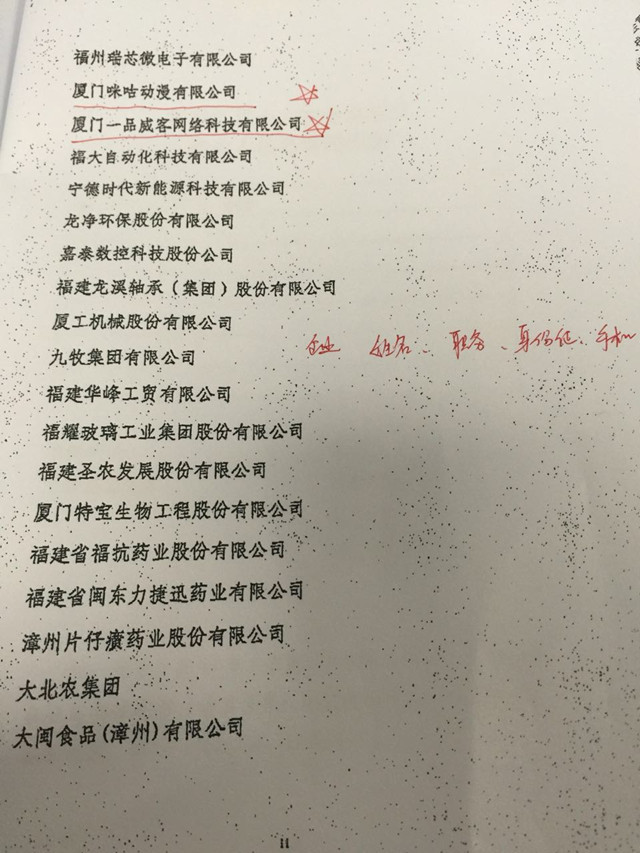 福州瑞芯微电子有限公司
厦门咪咕动漫有限公司
厦门一品威客网络科技有限公司
福大自动化科技有限公司
宁德时代新能源科技有限公司
龙净环保股份有限公司
嘉泰数控科技股份公司
福建龙溪轴承（集团）股份有限公司
厦工机械股份有限公司
企业 姓名、职务、身份证、手机
九牧集团有限公司
福建华峰工贸有限公司
福耀玻璃工业集团股份有限公司
福建圣农发展股份有限公司
厦门特宝生物工程股份有限公司
福建省福抗药业股份有限公司
福建省闽东力捷迅药业有限公司
漳州片仔癀药业股份有限公司
大北农集团
大闽食品(漳州)有限公司
11